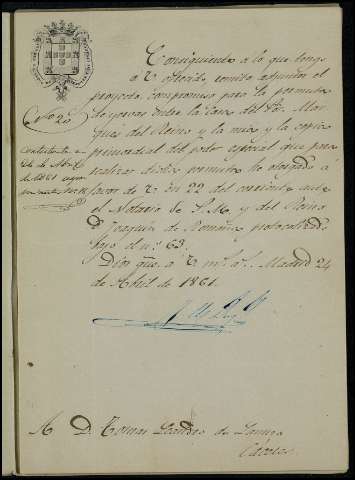 Consiguiente a lo que tengo
a V. ofrecido remito adjunto el
proyecto compromiso para la permuta
de yervas entre la Casa del Sr. Mar
ques del Reino y la mia y la copia
primordial del poder especial que para
realizar dicha permuta he otorgado á
favor de V. en 22 del corriente ante
el Notario de S. M. y del Reino
D. Joaquin de protocolizado
bajo el nº 63.
Dios gue. a V. ms. as. Madrid 24
de Abril de 1861.
Nº 20
Contestada en
de Abl.
de 1861
A D. Tomas Leandro de
Cáceres